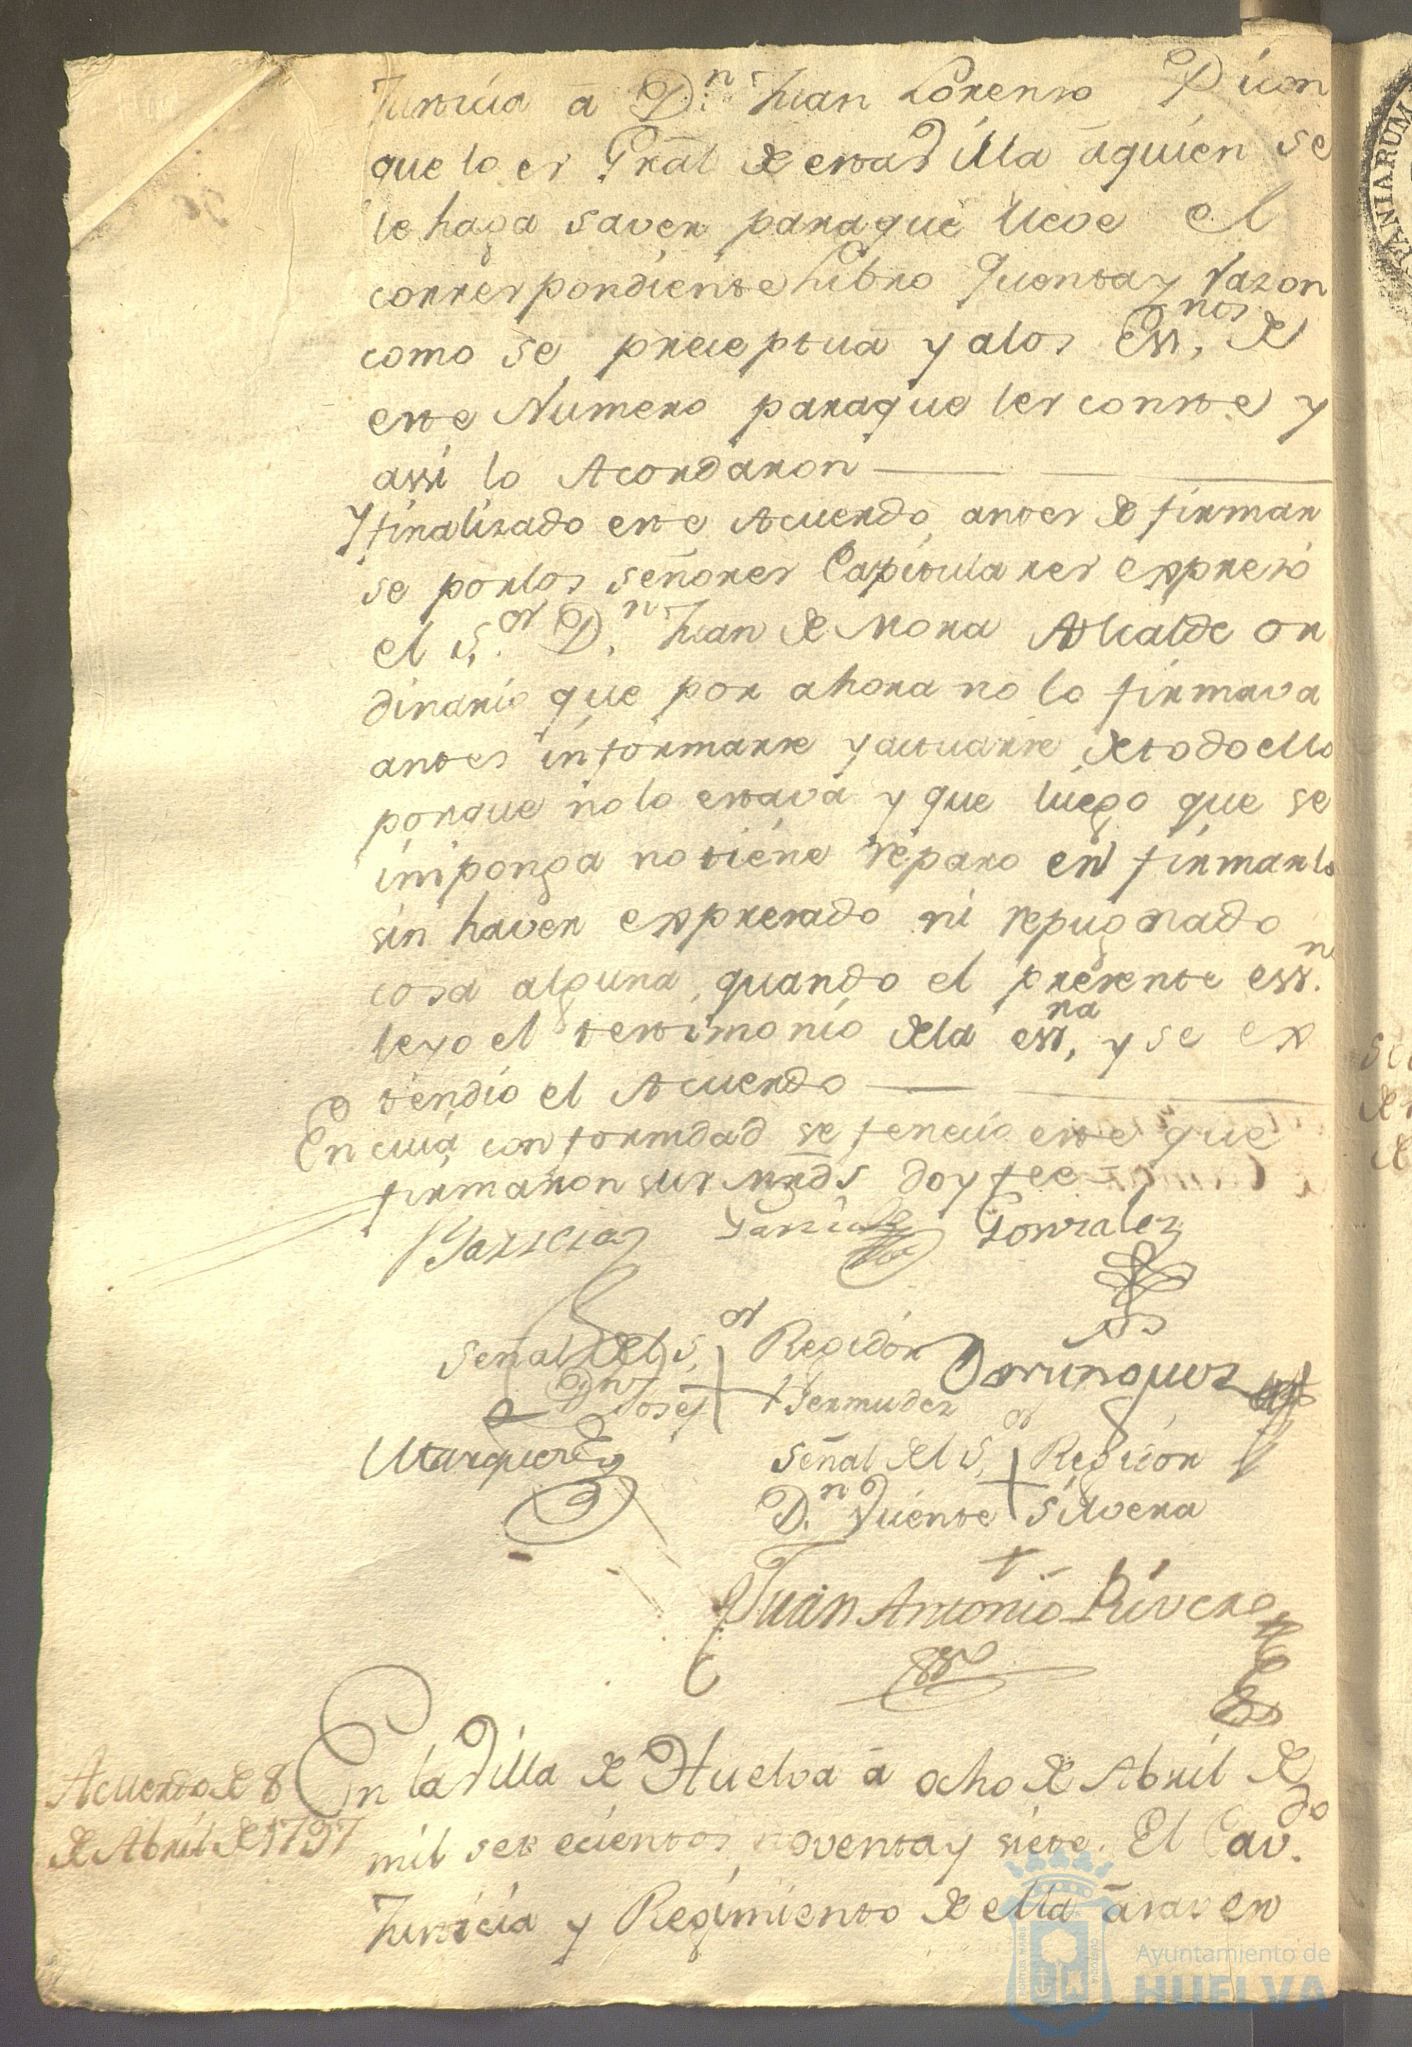 Justicia â D.n Juan Lorenso Picon
que lo es Grãl de esta Villa âquien se
le haga saver paraque lleve el
correspondiente Libro Quenta y razon
como se preceptua y alos Ess.nos de
este Numero paraque les conste y
assi lo Acordaron
Y finalizado este Acuerdo antes de firmar
se porlos señores Capitulares expresó
el S.or D.n Juan de Mora Alcalde or
dinario que por ahora no lo firmava
antes informarse y actuarse detodo ello
porque nolo estava y que luego que se
imponga no tiene reparo en firmarlo
sin haver expresado ni repugnado
cosa alguna, quando el presente ess.n
leyo el testimonio dela ess.na y se ex
tendio el Acuerdo
En cuia conformidad se fenecio este que
firmaron sus mrds doy fee
Garcia Garcia Gonzalez
Señal del S.or Regidor
D.n Josef Bermudez Dominguez
Marquez
Señal del S.or Regidor
D.n Visente Silvera
Juan Antonio Rivera
Acuerdo de 8
de Abril de 1797
En la Villa de Huelva â ocho de Abril de
mil setecientos noventa y siete. El Cav.do
Justicia y Regimiento de ella âsaver
Ayuntamiento de
HUELVA